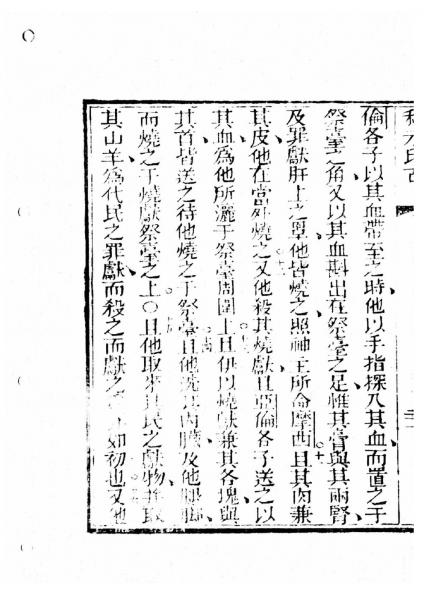 倫各子以其血帶至之時他以手指探入其血而置之于
祭臺之角又以其血斟出在祭臺之足惟其膏與其兩腎
及罪獻肝上之罩他皆燒之照神主所命摩西且其肉兼
其皮他在營外燒之又他殺其燒獻且亞倫各子送之以
其血為他所灑于祭臺周圍上且伊以燒獻兼其各塊與
其首皆送之待他燒之于祭臺且他洗其內臟及他腿腳
而燒之于燒獻祭臺之上〇且他取來其民之獻物並取
其山羊為代民之罪獻而殺之而獻之 如初也又他